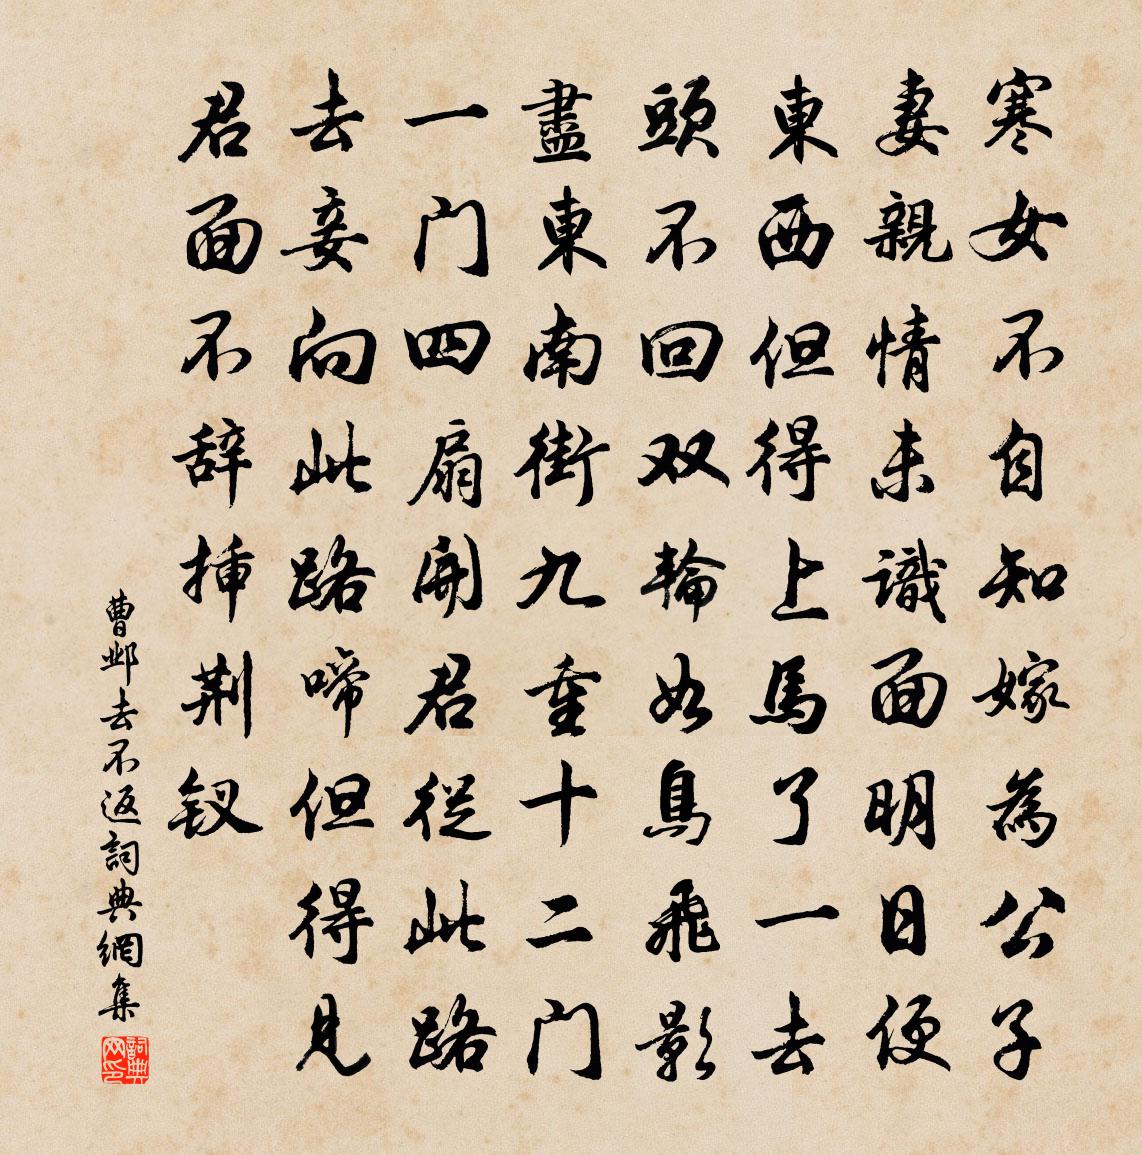 寒女不自知嫁為公子
妻親情未識面明日便
東西但得上馬了一去
頭不回双輪如鳥飛影
盡東南街九重十二門
一门四扇開君從此路
去妾向此路啼但得見
君面不辞挿荆钗
曹邺去不返詞典網集
詞典网印